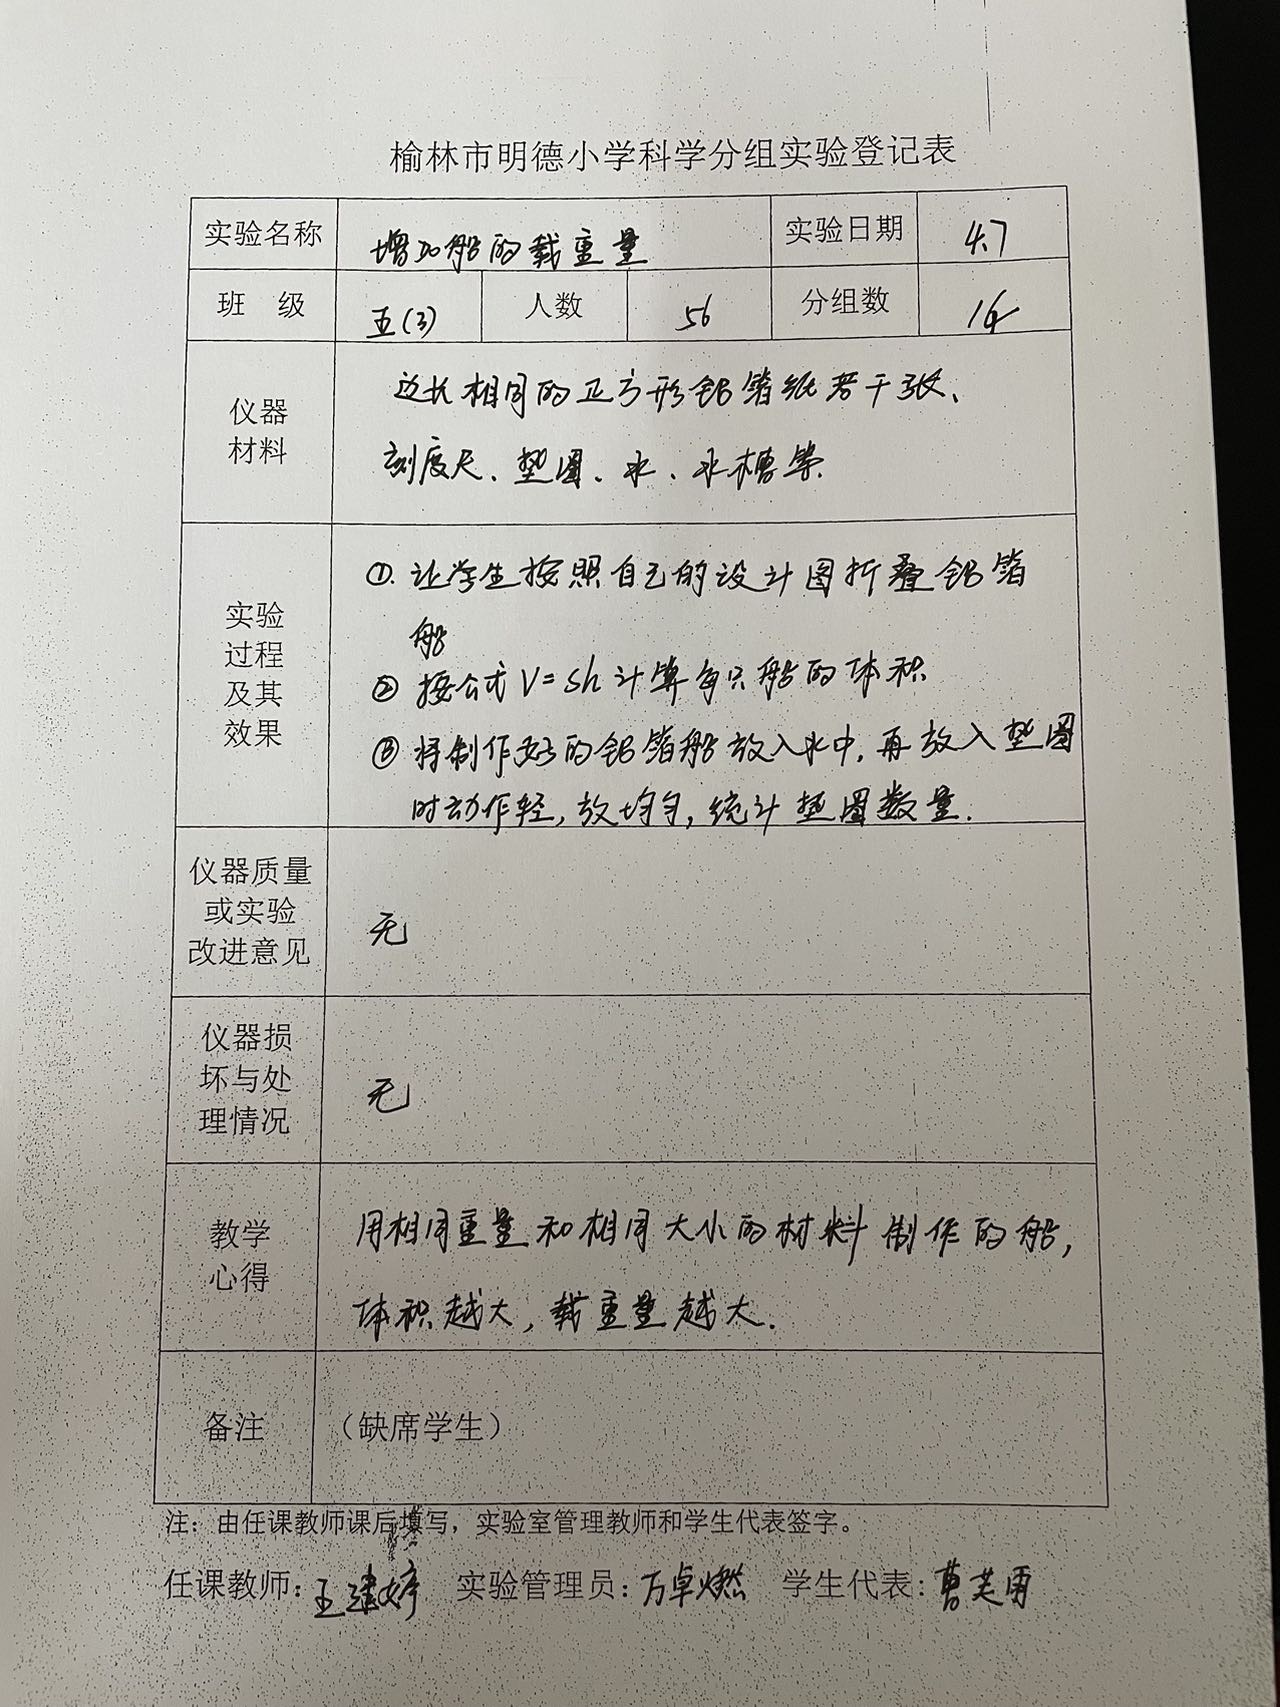 榆林市明德小学科学分组实验登记表
实验名称 增加船的载重量 实验日期 4.7
班 级 五(3) 人数 56 分组数 14
仪器
材料
边长相同的正方形铝箔纸若干张、
刻度尺、垫圈、水、水槽等.
实验
过程
及其
效果
①. 让学生按照自己的设计图折叠铝箔
船
② 按公式V=Sh计算每只船的体积
③ 将制作好的铝箔船放入水中,再放入垫圈
时动作轻,放均匀,统计垫圈数量.
仪器质量
或实验
改进意见
无
仪器损
坏与处
理情况
无
教学
心得
用相同重量和相同大小的材料制作的船,
体积越大,载重量越大.
备注 （缺席学生）
注：由任课教师课后填写，实验室管理教师和学生代表签字。
任课教师：王建婷 实验管理员：万卓燃 学生代表：曹芙雨